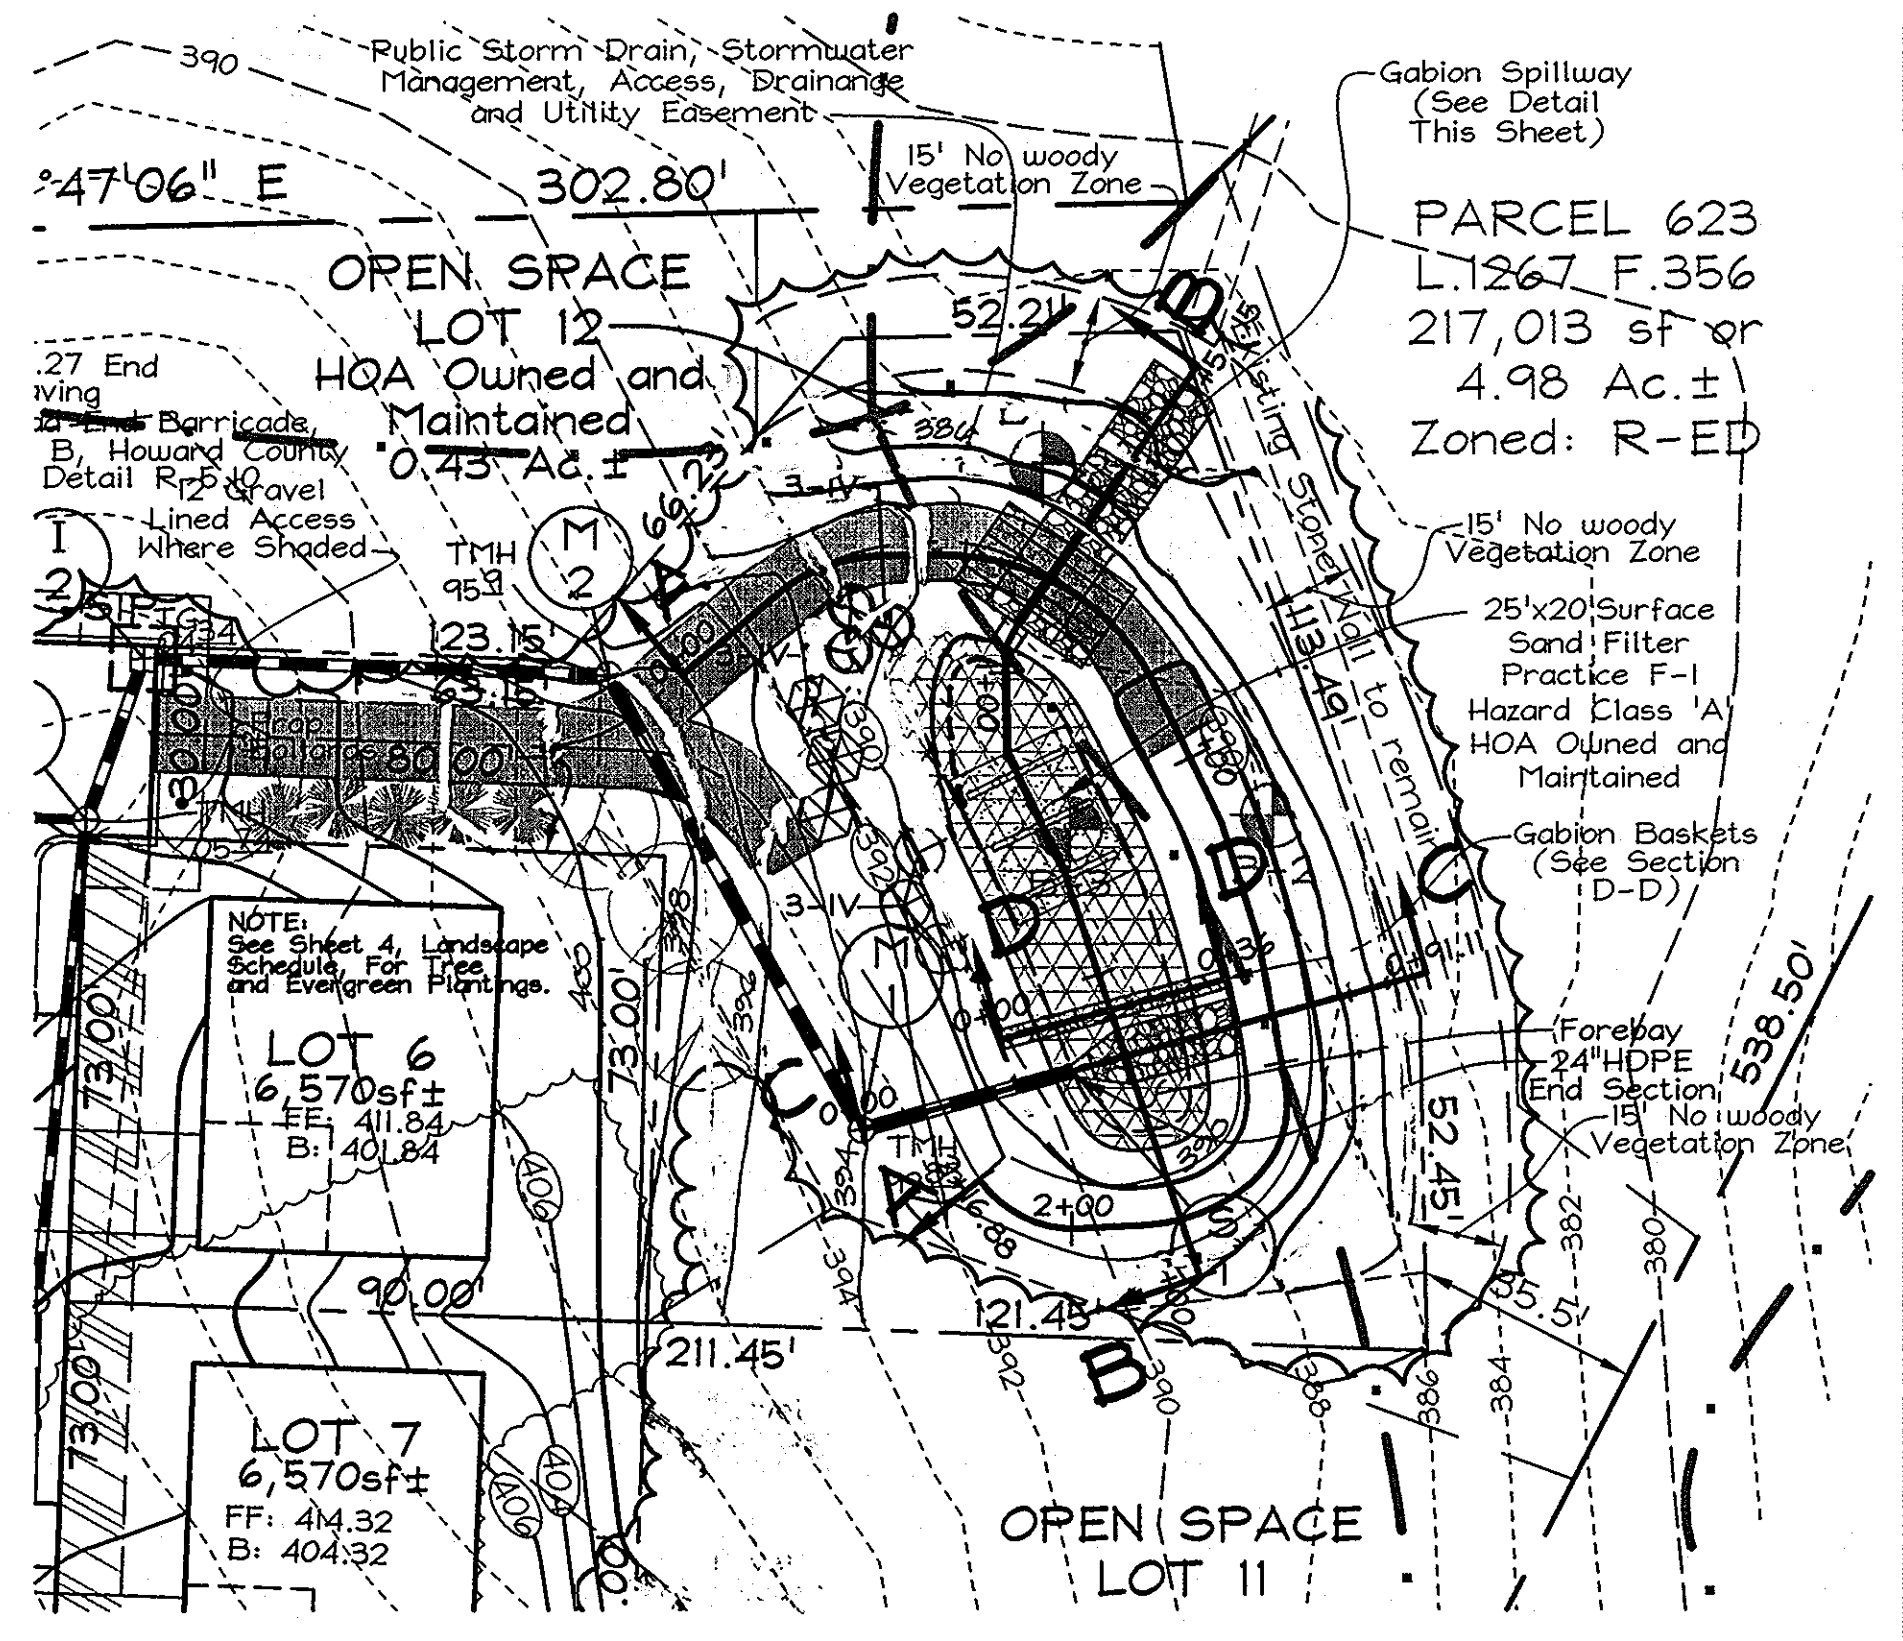 390
Public Storm Drain, Stormwater
Management, Access, Drainange
and Utility Easement
Gabion Spillway
(See Detail
This Sheet)
15' No woody
Vegetation Zone
°47'06" E
302.80'
PARCEL 623
L.1267 F.356
217,013 sf or
4.98 Ac.±
Zoned: R-ED
OPEN SPACE
LOT 12
HOA Owned and
Maintained
0.43 Ac.±
52.21'
B
.27 End
Barricade,
B, Howard County
Detail R-5.10
12' Gravel
Lined Access
Where Shaded
I
2
TMH
M
2
66.23'
A
3-IV
Existing Stone Wall to remain
15' No woody
Vegetation Zone
25'x20' Surface
Sand Filter
Practice F-1
Hazard Class 'A'
HOA Owned and
Maintained
113.49'
23.15'
63.15'
0+00
30.00'
80.00'
390
392
398
400
396
3-IV
M
1
D
D
C
0+36
0+00
0+91.11
Gabion Baskets
(See Section
D-D)
NOTE:
See Sheet 4, Landscape
Schedule, For Tree
and Evergreen Plantings.
LOT 6
6,570sf±
FF: 411.84
B: 401.84
73.00'
73.00'
538.50'
Forebay
24"HDPE
End Section
15' No woody
Vegetation Zone
C
0+00
TMH
A
2+00
390
52.45'
394
394
406
382
380
90.00'
211.45'
121.45'
B
55.5'
392
390
388
386
384
73.00'
LOT 7
6,570sf±
FF: 414.32
B: 404.32
406
404
OPEN SPACE
LOT 11